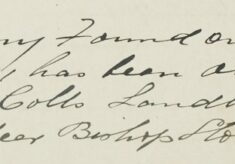 ny Found on
, has been
Colls Land
Bishop Sto